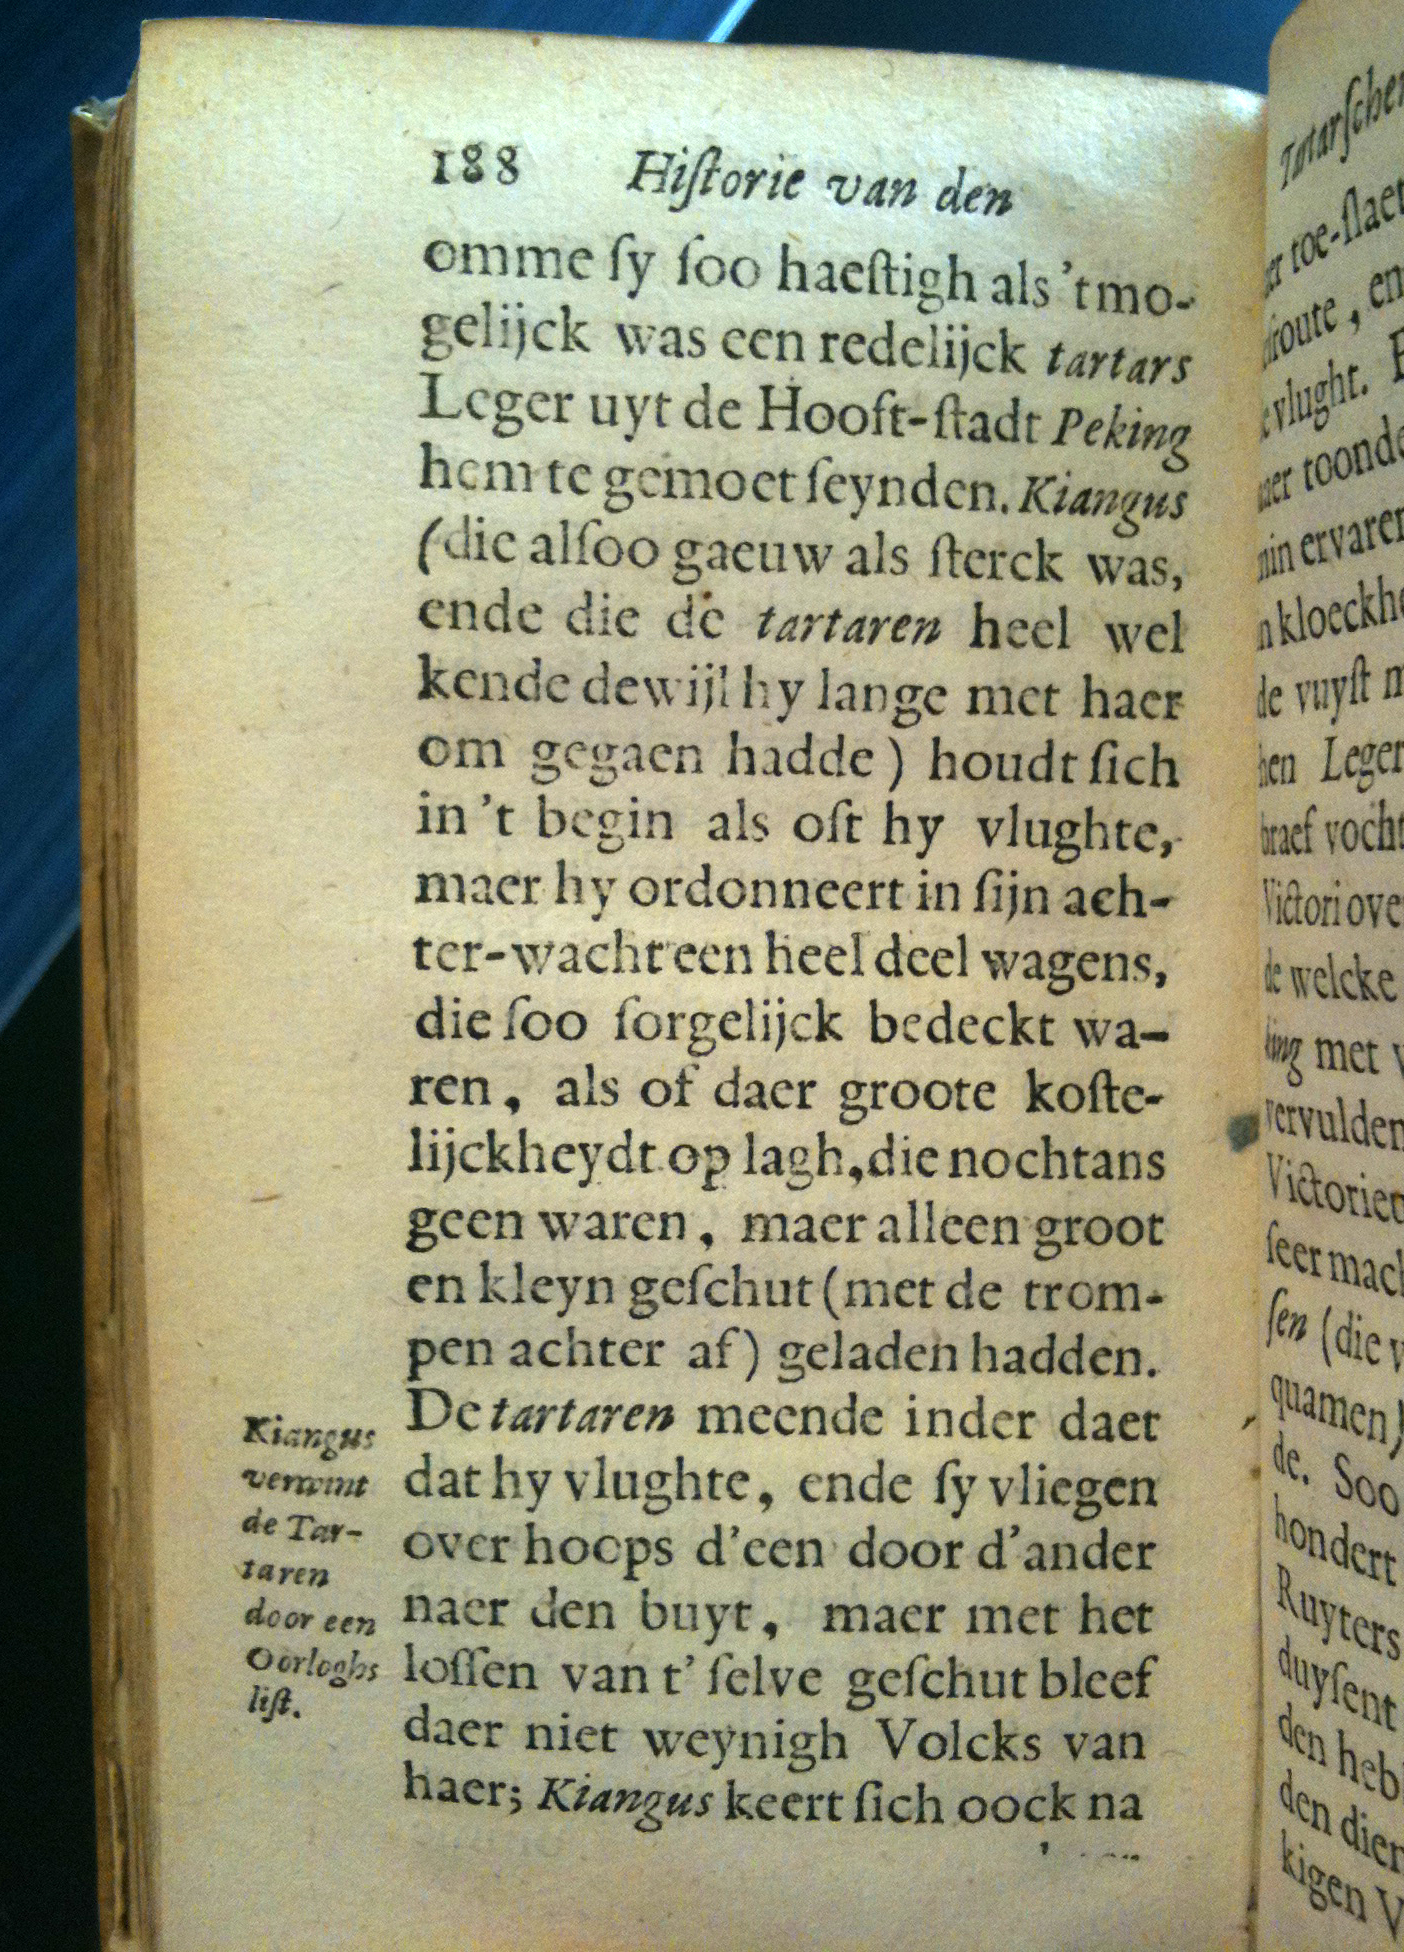 188 Hiſtorie van den
omme ſy ſoo haeſtigh als 't mo-
gelijck was een redelijck tartars
Leger uyt de Hooft-ſtadt Peking
hem te gemoet ſeynden. Kiangus
(die alſoo gaeuw als ſterck was,
ende die de tartaren heel wel
kende dewijl hy lange met haer
om gegaen hadde) houdt ſich
in 't begin als oft hy vlughte,
maer hy ordonneert in ſijn ach-
ter-wacht een heel deel wagens,
die ſoo ſorgelijck bedeckt wa-
ren, als of daer groote koſte-
lijckheydt op lagh, die nochtans
geen waren, maer alleen groot
en kleyn geſchut (met de trom-
pen achter af) geladen hadden.
De tartaren meende inder daet
dat hy vlughte, ende ſy vliegen
over hoops d'een door d'ander
naer den buyt, maer met het
loſſen van t' ſelve geſchut bleef
daer niet weynigh Volcks van
haer; Kiangus keert ſich oock na
Kiangus
verwint
de Tar-
taren
door een
Oorloghs
liſt.
Tatarſchen
toe-ſlaet
route, en
vlught.
toonde
ervaren
kloeckhe
de vuyſt
Leger
braef vocht
Victori ove
de welcke
met
vervulden
Victorien
ſeer mach
ſen (die
quamen)
de. Soo
hondert
Ruyters
duyſent
den heb
den dien
kigen V